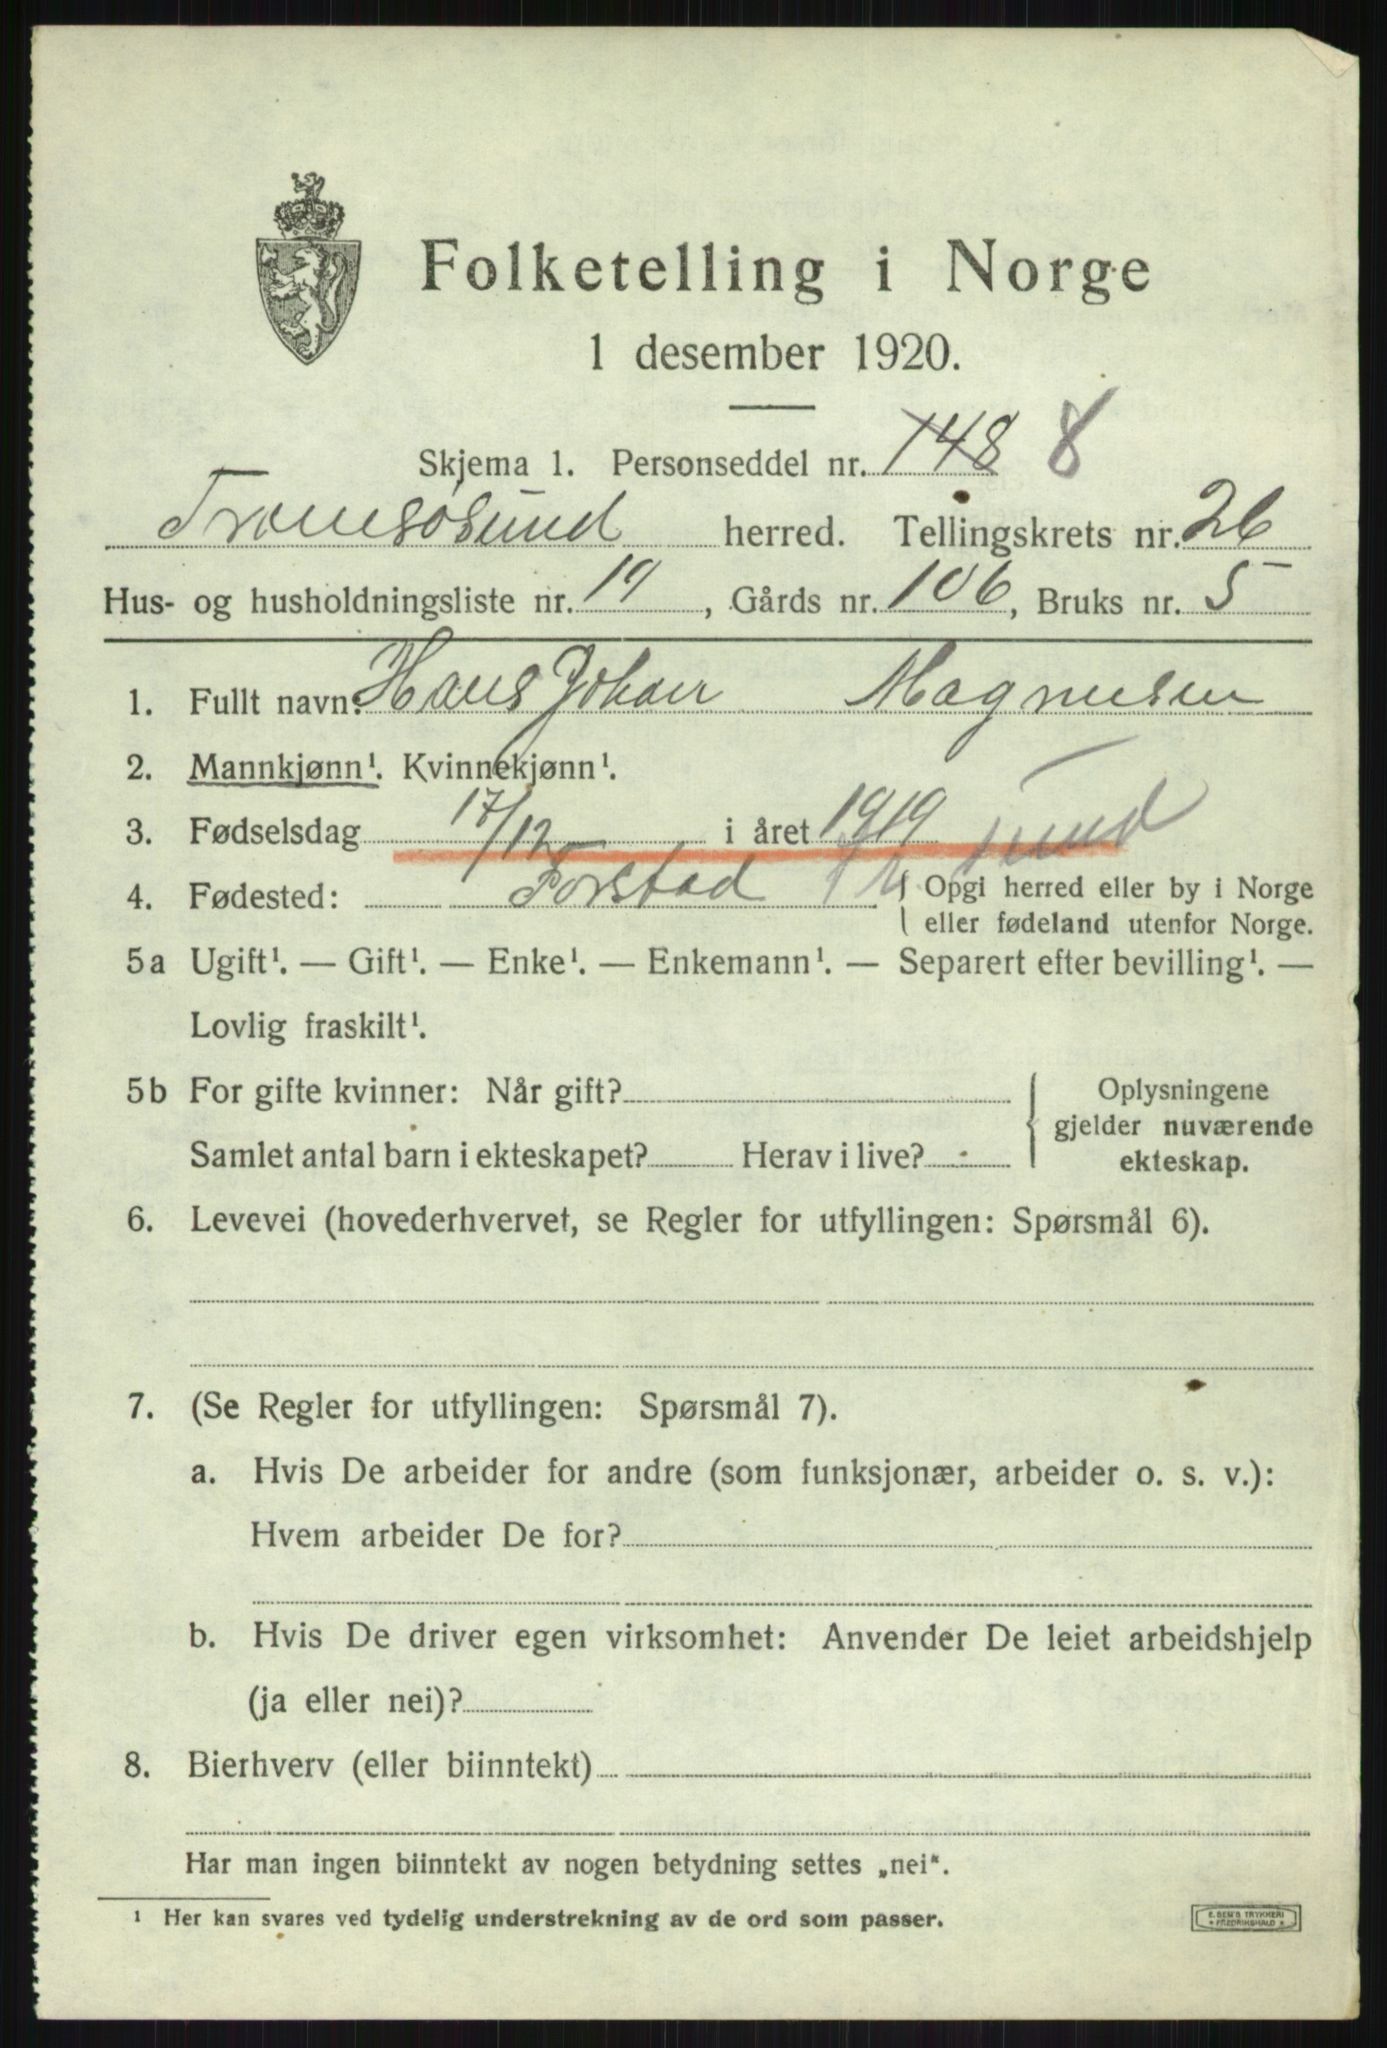 Folketelling i Norge
1 desember 1920.
Skjema 1. Personseddel nr. 148 8
Tromsøsund herred. Tellingskrets nr. 26
Hus- og husholdningsliste nr. 19, Gårds nr. 106, Bruks nr. 5
1. Fullt navn: Hans Johan Magnusen
2. Mannkjønn¹. Kvinnekjønn¹.
3. Fødselsdag 17/12 i året 1919
4. Fødested: Torstad sund { Opgi herred eller by i Norge
eller fødeland utenfor Norge.
5a Ugift¹. — Gift¹. — Enke¹. — Enkemann¹. — Separert efter bevilling¹. —
Lovlig fraskilt¹.
5b For gifte kvinner: Når gift? { Oplysningene
gjelder nuværende
Samlet antal barn i ekteskapet? Herav i live? ekteskap.
6. Levevei (hovederhvervet, se Regler for utfyllingen: Spørsmål 6).
7. (Se Regler for utfyllingen: Spørsmål 7).
a. Hvis De arbeider for andre (som funksjonær, arbeider o. s. v.):
Hvem arbeider De for?
b. Hvis De driver egen virksomhet: Anvender De leiet arbeidshjelp
(ja eller nei)?
8. Bierhverv (eller biinntekt)
Har man ingen biinntekt av nogen betydning settes „nei".
¹ Her kan svares ved tydelig understrekning av de ord som passer.
E. SEM'S TRYKKERI
* FREDRIKSHALD *